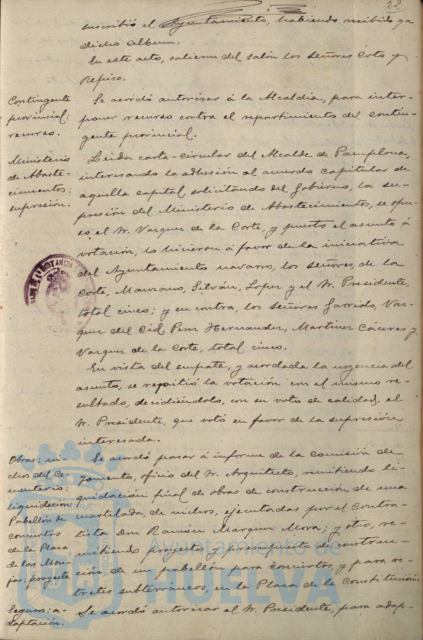 22
suscribió el Ayuntamiento, habiendo recibido ya
dicho album.
En este acto, salieron del salón los Señores Coto y
Repiso.
Contingente
provincial:
recurso.
Se acordó autorizar á la Alcaldia, para inter-
poner recurso contra el repartimiento del contin-
gente provincial.
Ministerio
de Abaste-
cimientos:
supresión.
Leida carta-circular del Alcalde de Pamplona,
interesando la adhesión al acuerdo capitular de
aquella capital, solicitando del Gobierno, la su-
presión del Ministerio de Abastecimientos, se opu-
so el Sr. Vazquez de la Corte, y puesto el asunto á
votación, lo hicieron á favor de la iniciativa
del Ayuntamiento navarro, los señores de la
Corte, Manzano, Silván, Lopez y el Sr. Presidente,
total cinco; y en contra, los Señores Garrido, Vaz-
quez del Cid, Hernandez, Martinez Cáceres y
Vazquez de la Corte, total cinco.
En vista del empate, y acordada la urgencia del
asunto, se repitió la votación con el mismo re-
sultado, decidiéndolo, con su voto de calidad, el
Sr. Presidente, que votó en favor de la supresión
interesada.
Obras: ni-
chos del Ce-
menterio:
liquidación:
Pabellón de
conciertos
de la Plaza
de las Mon-
jas: proyecto.
Se acordó pasar á informe de la Comisión de
Fomento, oficio del Sr. Arquitecto, remitiendo li-
quidación final de obras de construcción de una
martilada de nichos, ejecutadas por el Contra-
tista Don Ramón Marquez Mora; y otro, re-
mitiendo proyecto y presupuesto de construc-
ción de un pabellón para conciertos, y para re-
tretes subterraneos, en la Plaza de la Constitución.
Seguro: a-
daptación.
Se acordó autorizar al Sr. Presidente, para adap-
Ayuntamiento de
HUELVA